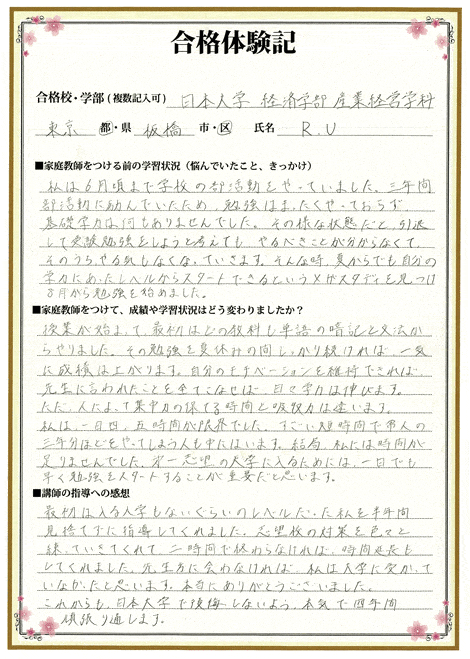 合格体験記
合格校・学部(複数記入可) 日本大学 経済学部 産業経営学科
東京 都・県 板橋 市・区 氏名 R.U
■家庭教師をつける前の学習状況(悩んでいたこと、きっかけ)
私は6月頃まで学校の部活動をやっていました。三年間
部活動に励んでいたため、勉強はまったくやっておらず、
基礎学力は何もありませんでした。その様な状態だと、引退
して受験勉強をしようと考えても、やるべきことが分からなくて、
そのうち、やる気もしなくなっていきます。そんな時、夏からでも自分の
学力にあったレベルからスタートできるというメガスタディを見つけ
8月から勉強を始めました。
■家庭教師をつけて、成績や学習状況はどう変わりましたか?
授業が始まって、最初はどの教科も単語の暗記と文法か
らやりました。その勉強を夏休みの間しっかり続ければ、一気
に成績は上がります。自分のモチベーションを維持できれば、
先生に言われたことを全てこなせば、日々学力は伸びます。
ただ、人によって集中力の保てる時間と吸収力は違います。
私は、一日四、五時間が限界でした。すごい短時間で常人の
三年分ほどをやってしまう人も中にはいます。結局、私には時間が
足りませんでした。第一志望の大学に入るためには、一日でも
早く勉強をスタートすることが重要だと思います。
■講師の指導への感想
最初は入る大学もないぐらいのレベルだった私を半年間
見捨てずに指導してくれました。志望校の対策を色々と
練っていきてくれて、二時間で終わらなければ、時間延長も
してくれました。先生方に会わなければ、私は大学に受かって
いなかったと思います。本当にありがとうございました。
これからも、日本大学で後悔しないよう、本気で四年間
頑張り通します。